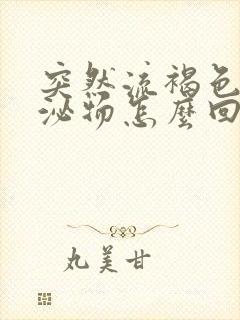 突然流褐色
泌物怎麼回
丸美甘